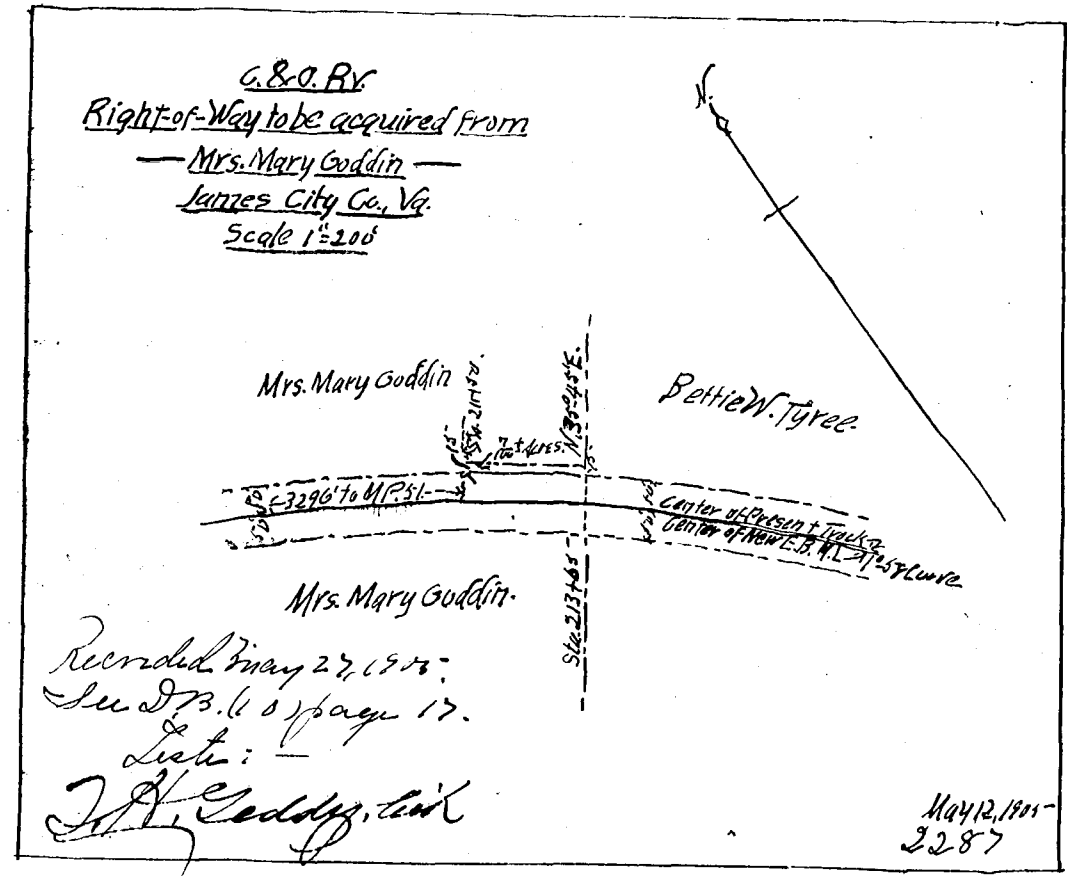 C.&O. Ry.
Right-of-Way to be acquired from
— Mrs. Mary Goddin —
James City Co., Va.
Scale 1"=200'
N.
Mrs. Mary Goddin
Sta. 211+50.
N.35°45'E.
Bettie W. Tyree.
7/100± Acres.
15'
15'
3296' to M.P. 51
50'
50'
50'
50'
50'
Center of Present Track
Center of New E.B.M.L. 1°-58' Curve
Mrs. Mary Goddin.
Sta. 213+65
Recorded May 27, 1905.
See D.B. (10) page 17.
Teste: —
T.H. Geddy, Clerk
May 12, 1905
2287